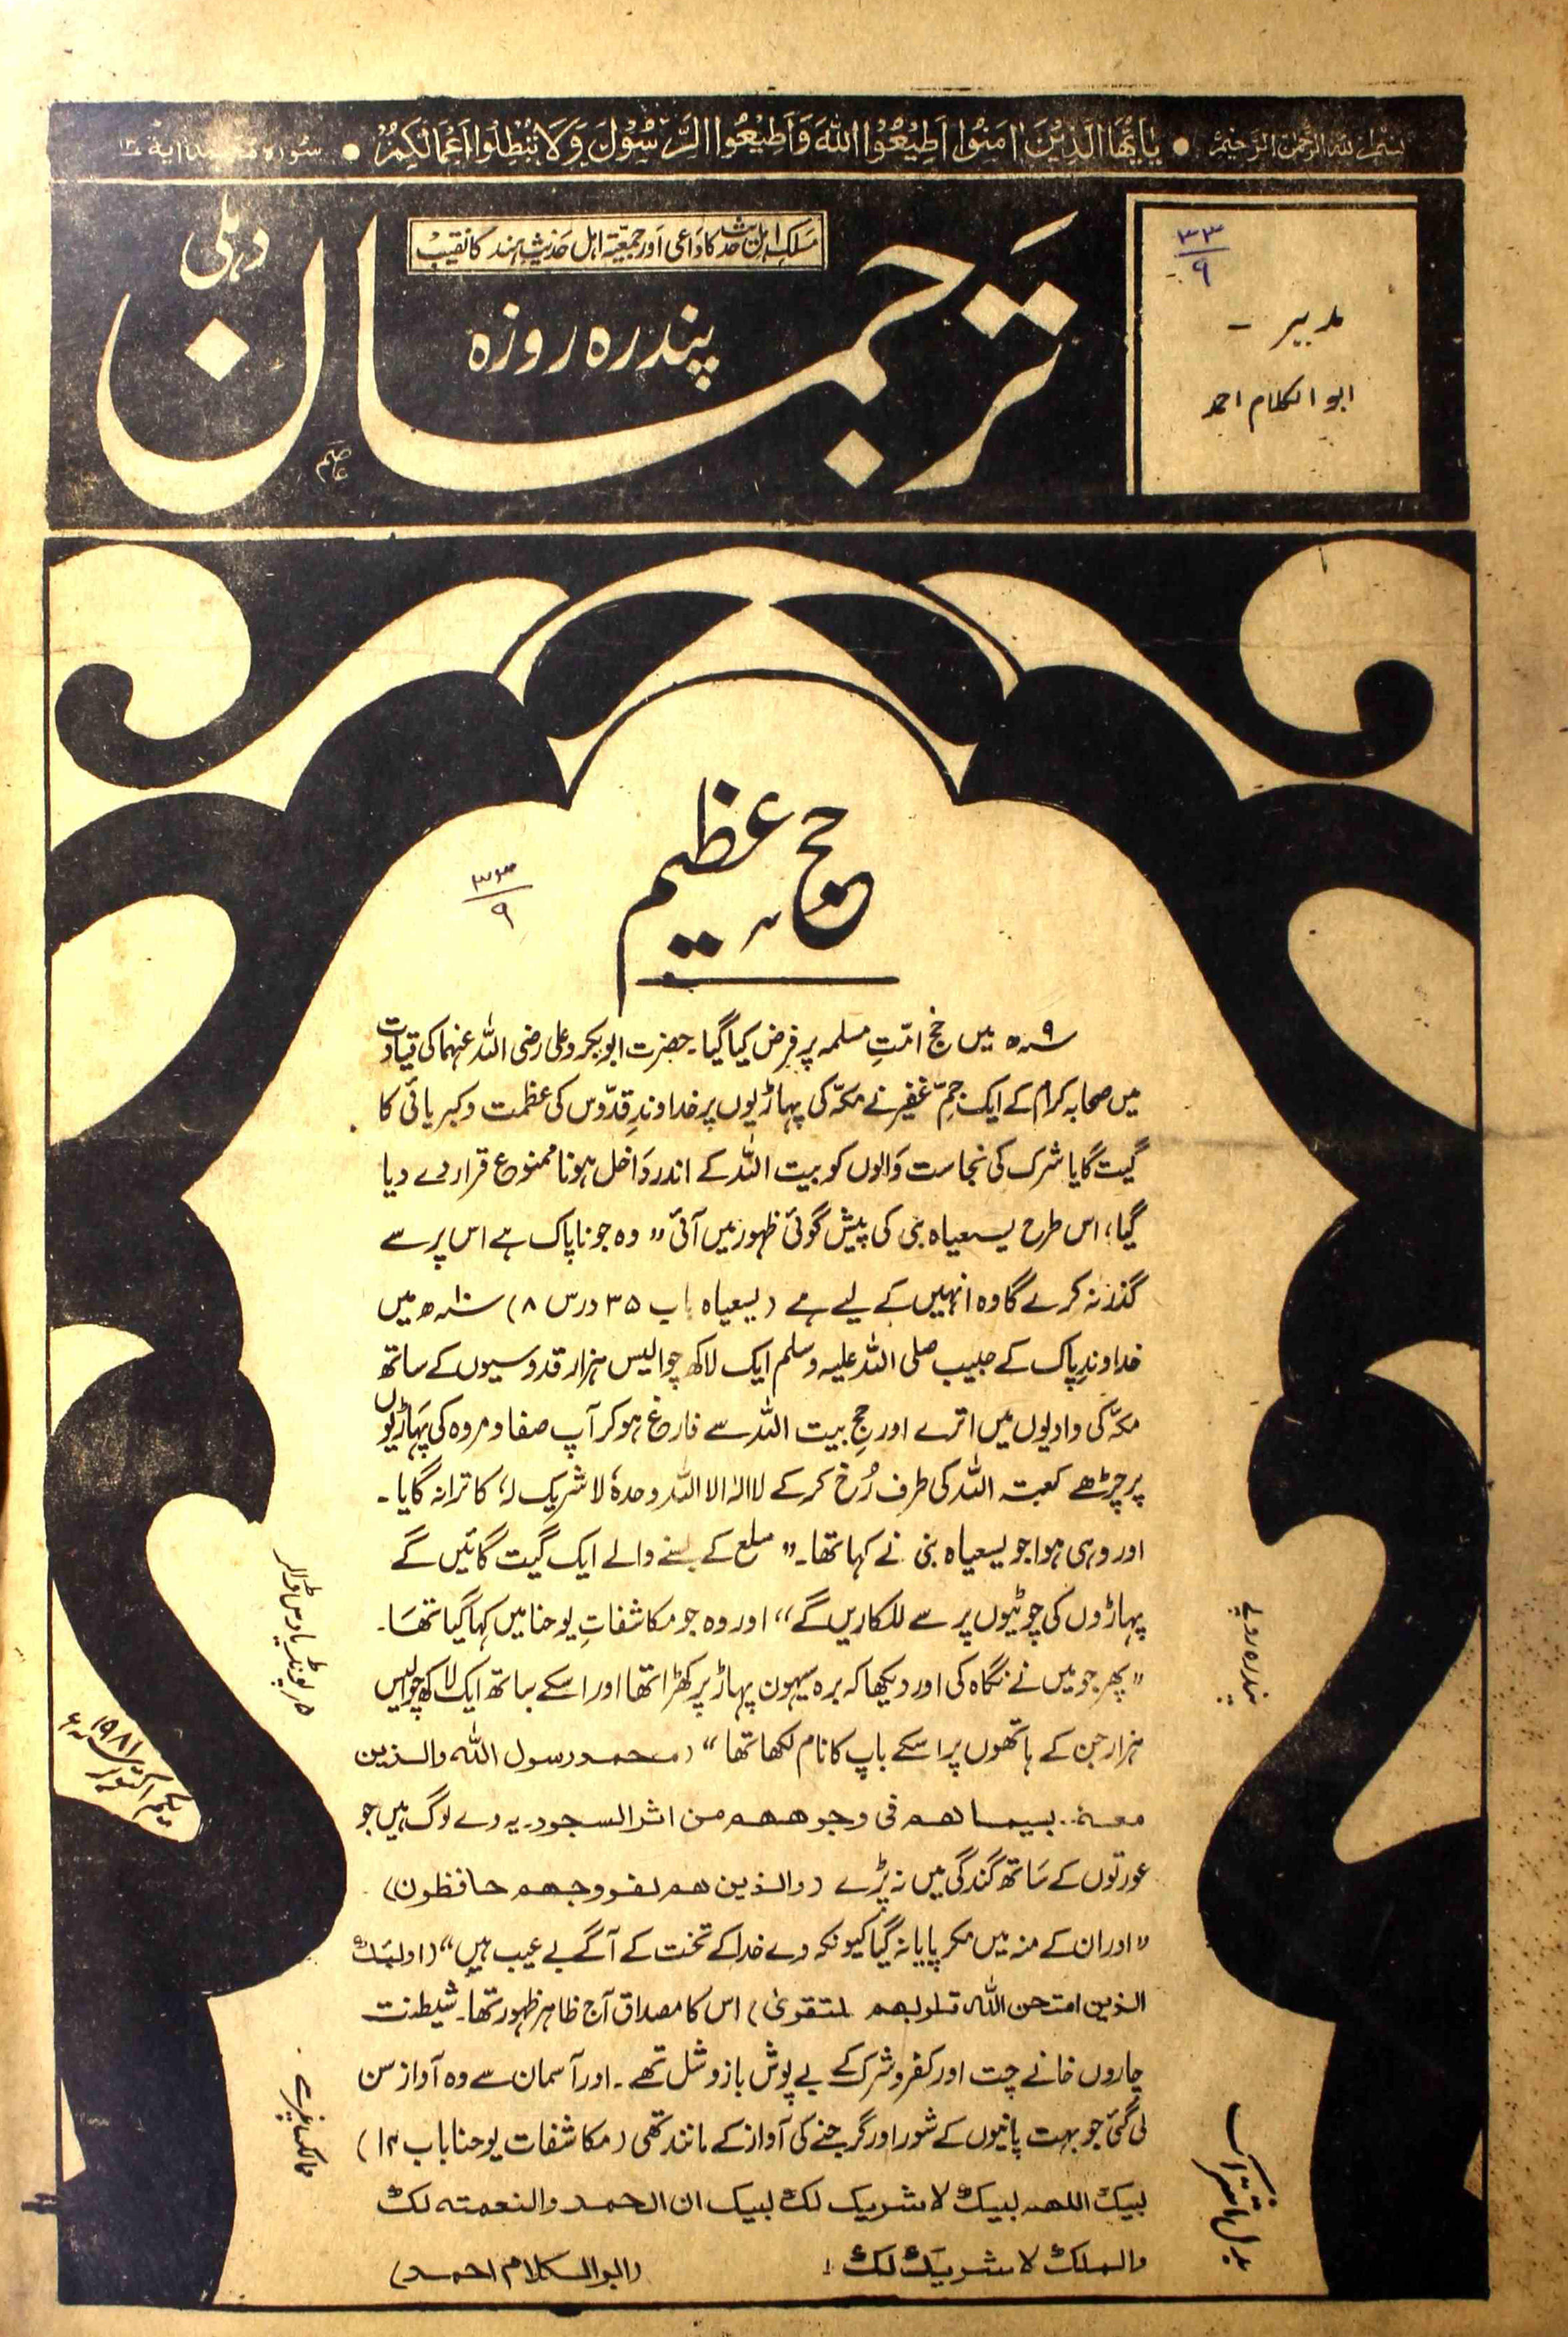 بسم اللہ الرحمن الرحیم ● یٰاَیُّھَا الَّذِیْنَ اٰمَنُوْا اَطِیْعُوا اللّٰهَ وَاَطِیْعُوا الرَّسُوْلَ وَلَا تُبْطِلُوْا اَعْمَالَكُمْ ● سورہ
مسلک اہل حدیث کا داعی اور جمعیۃ اہل حدیث ہند کا نقیب
پندرہ روزہ
ترجمان
دہلی
عاصم
۳۳
۹
مدیر -
ابوالکلام احمد
حجِ عظیم
۳۳
۹
۹ھ میں حج امتِ مسلمہ پر فرض کیا گیا۔ حضرت ابوبکر و علی رضی اللہ عنہما کی قیادت
میں صحابہ کرام کے ایک جمِّ غفیر نے مکہ کی پہاڑیوں پر خداوندِ قدّوس کی عظمت و کبریائی کا
گیت گایا شرک کی نجاست والوں کو بیت اللہ کے اندر داخل ہونا ممنوع قرار دے دیا
گیا، اس طرح یسعیاہ نبی کی پیش گوئی ظہور میں آئی ”وہ جو ناپاک ہے اس پر سے
گذر نہ کرے گا وہ انہیں کے لیے ہے (یسعیاہ باب ۳۵ درس ۸) ۱۰ھ میں
خداوندِ پاک کے حبیب صلی اللہ علیہ وسلم ایک لاکھ چوالیس ہزار قدوسیوں کے ساتھ
مکہ کی وادیوں میں اترے اور حجِ بیت اللہ سے فارغ ہو کر آپ صفا و مروہ کی پہاڑیوں
پر چڑھے کعبتہ اللہ کی طرف رُخ کرکے لا الہ الا اللہ وحدہٗ لا شریک لہٗ کا ترانہ گایا۔
اور وہی ہوا جو یسعیاہ نبی نے کہا تھا۔ ”سلع کے بسنے والے ایک گیت گائیں گے
پہاڑوں کی چوٹیوں پر سے للکاریں گے“ اور وہ جو مکاشفاتِ یوحنا میں کہا گیا تھا۔
”پھر جو میں نے نگاہ کی اور دیکھا کہ برہ سیہون پہاڑ پر کھڑا تھا اور اسکے ساتھ ایک لاکھ چوالیس
ہزار جن کے ہاتھوں پر اسکے باپ کا نام لکھا تھا“ (محمد رسول اللہ والذین
معہٗ.. سیماھم فی وجوھھم من اثر السجود۔ یہ وے لوگ ہیں جو
عورتوں کے ساتھ گندگی میں نہ پڑے (والذین ھم لفروجھم حافظون)
”اور ان کے منہ میں مکر پایا نہ گیا کیونکہ وے خدا کے تخت کے آگے بے عیب ہیں“ (اولئک
الذین امتحن اللہ قلوبھم للتقویٰ) اس کا مصداق آج ظاہر ظہور تھا۔ شیطنت
چاروں خانے چت اور کفر و شرک کے بے پوش بازو شل تھے۔ اور آسمان سے وہ آواز سن
لی گئی جو بہت پانیوں کے شور اور گرجنے کی آواز کے مانند تھی (مکاشفات یوحنا باب ۱۴)
لبیک اللھم لبیک لا شریک لک لبیک ان الحمد والنعمتہ لک
والملک لا شریک لک!
(ابوالکلام احمد)
بدل اشتراک
پندرہ روپے
ممالک غیر سے
۵ر پونڈ یا دس ڈالر
یکم اکتوبر ۱۹۸۱ء